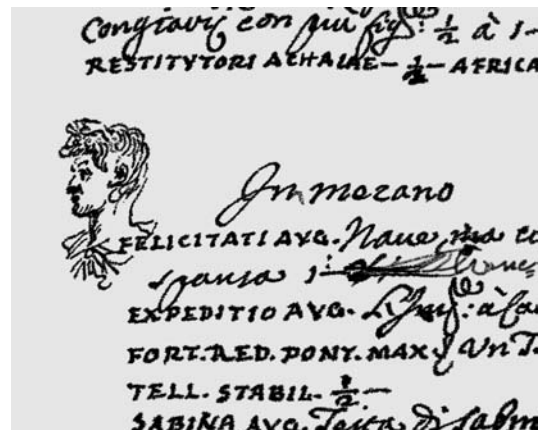 Congiarij con piu fig: ½ à 1-
RESTITVTORI ACHAIAE - ½ - AFRICA
In mezano
FELICITATI AVG. Naue, ma co
spansa 1:
EXPEDITIO AVG. à Ca
FORT. RED. PONT. MAX. Un T
TELL. STABIL. ½ -
SABINA AVG. Testa di Sabin